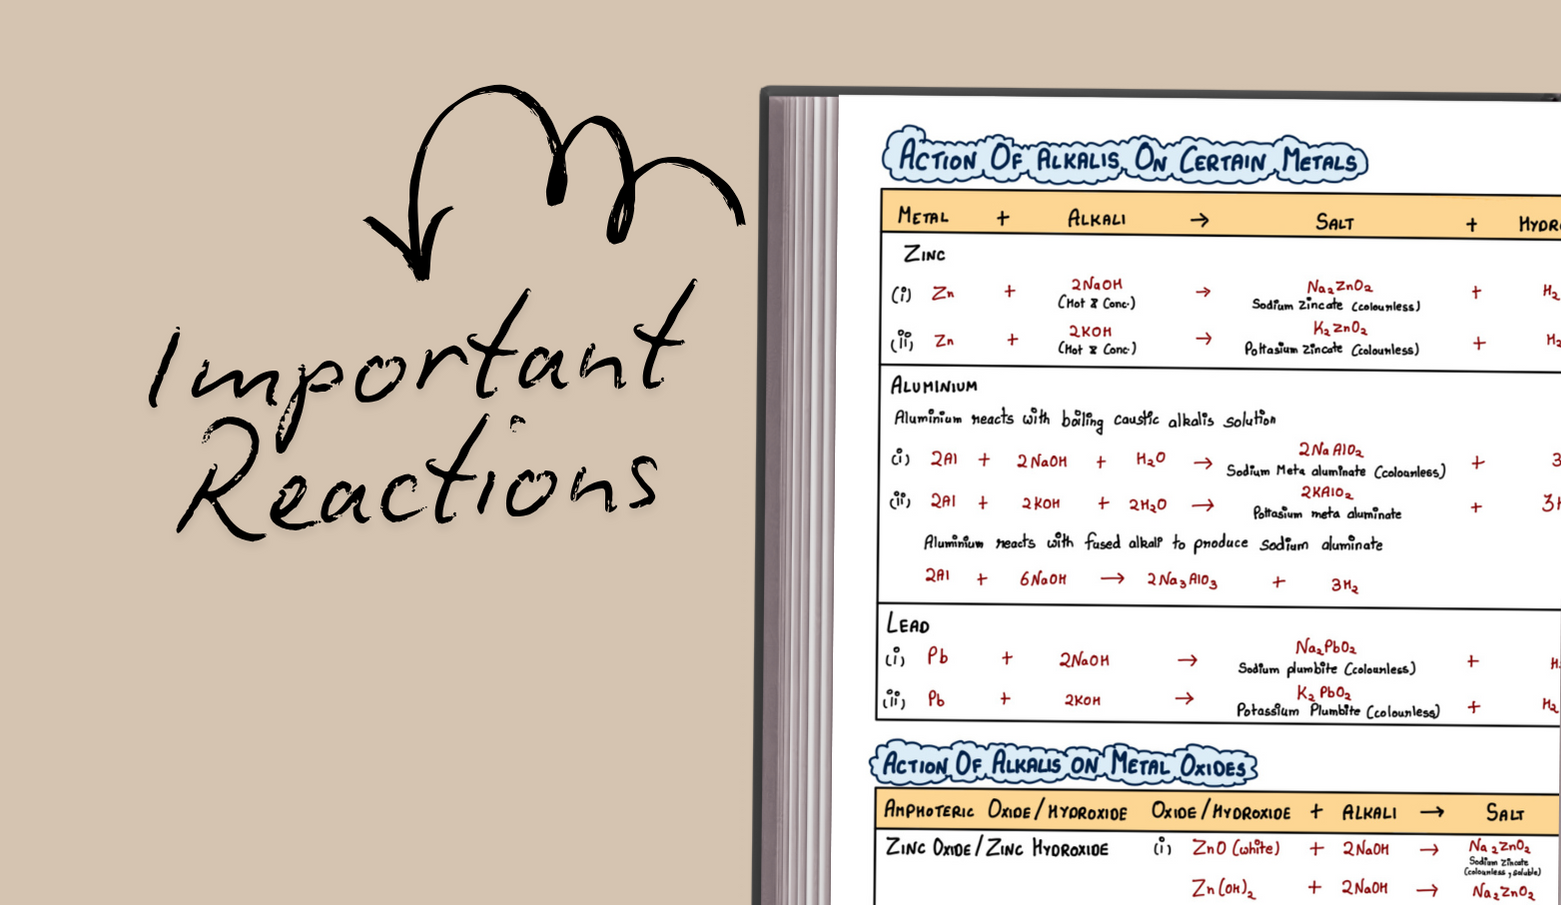 Important
Reactions
ACTION OF ALKALIS ON CERTAIN METALS
METAL + ALKALI → SALT + HYDR
ZINC
(i) Zn + 2NaOH → Na₂ZnO₂ + H₂
(Hot & Conc.) Sodium Zincate (colourless)
(ii) Zn + 2KOH → K₂ZnO₂ + H₂
(Hot & Conc.) Pottasium Zincate (colourless)
ALUMINIUM
Aluminium reacts with boiling caustic alkalis solution
(i) 2Al + 2NaOH + H₂O → 2NaAlO₂ + 3
Sodium Meta aluminate (colourless)
(ii) 2Al + 2KOH + 2H₂O → 2KAlO₂ + 3H
Pottasium meta aluminate
Aluminium reacts with fused alkali to produce Sodium aluminate
2Al + 6NaOH → 2Na₃AlO₃ + 3H₂
LEAD
(i) Pb + 2NaOH → Na₂PbO₂ + H₂
Sodium plumbite (colourless)
(ii) Pb + 2KOH → K₂PbO₂ + H₂
Potassium Plumbite (colourless)
ACTION OF ALKALIS ON METAL OXIDES
AMPHOTERIC OXIDE/HYDROXIDE OXIDE/HYDROXIDE + ALKALI → SALT
ZINC OXIDE/ZINC HYDROXIDE (i) ZnO (white) + 2NaOH → Na₂ZnO₂
Sodium Zincate
(colourless, soluble)
Zn(OH)₂ + 2NaOH → Na₂ZnO₂